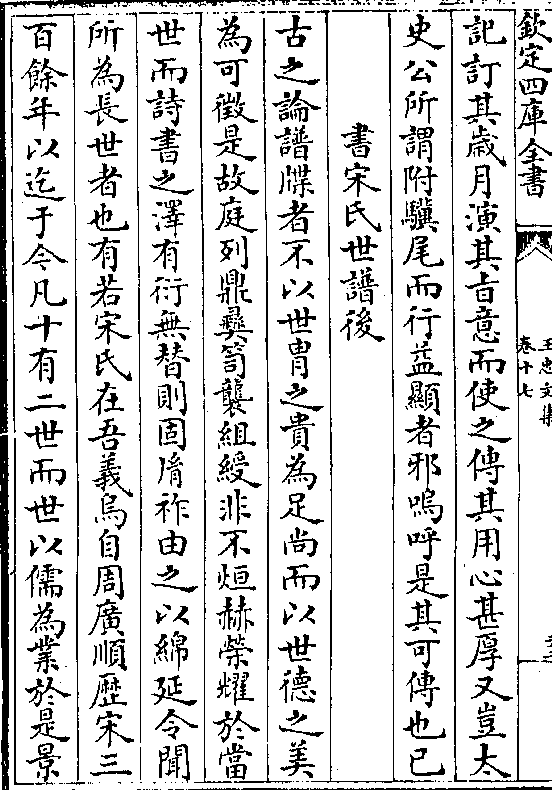 欽定四庫全書
王忠文集
卷十七
記訂其歲月演其旨意而使之傳其用心甚厚又豈太
史公所謂附驥尾而行益顯者邪嗚呼是其可傳也已
書宋氏世譜後
古之論譜牒者不以世胄之貴為足尚而以世德之美
為可徵是故庭列鼎彛笥襲組綬非不烜赫榮耀於當
世而詩書之澤有衍無替則固胤祚由之以綿延令聞
所為長世者也有若宋氏在吾義烏自周廣順歴宋三
百餘年以迄于今凡十有二世而世以儒為業於是景